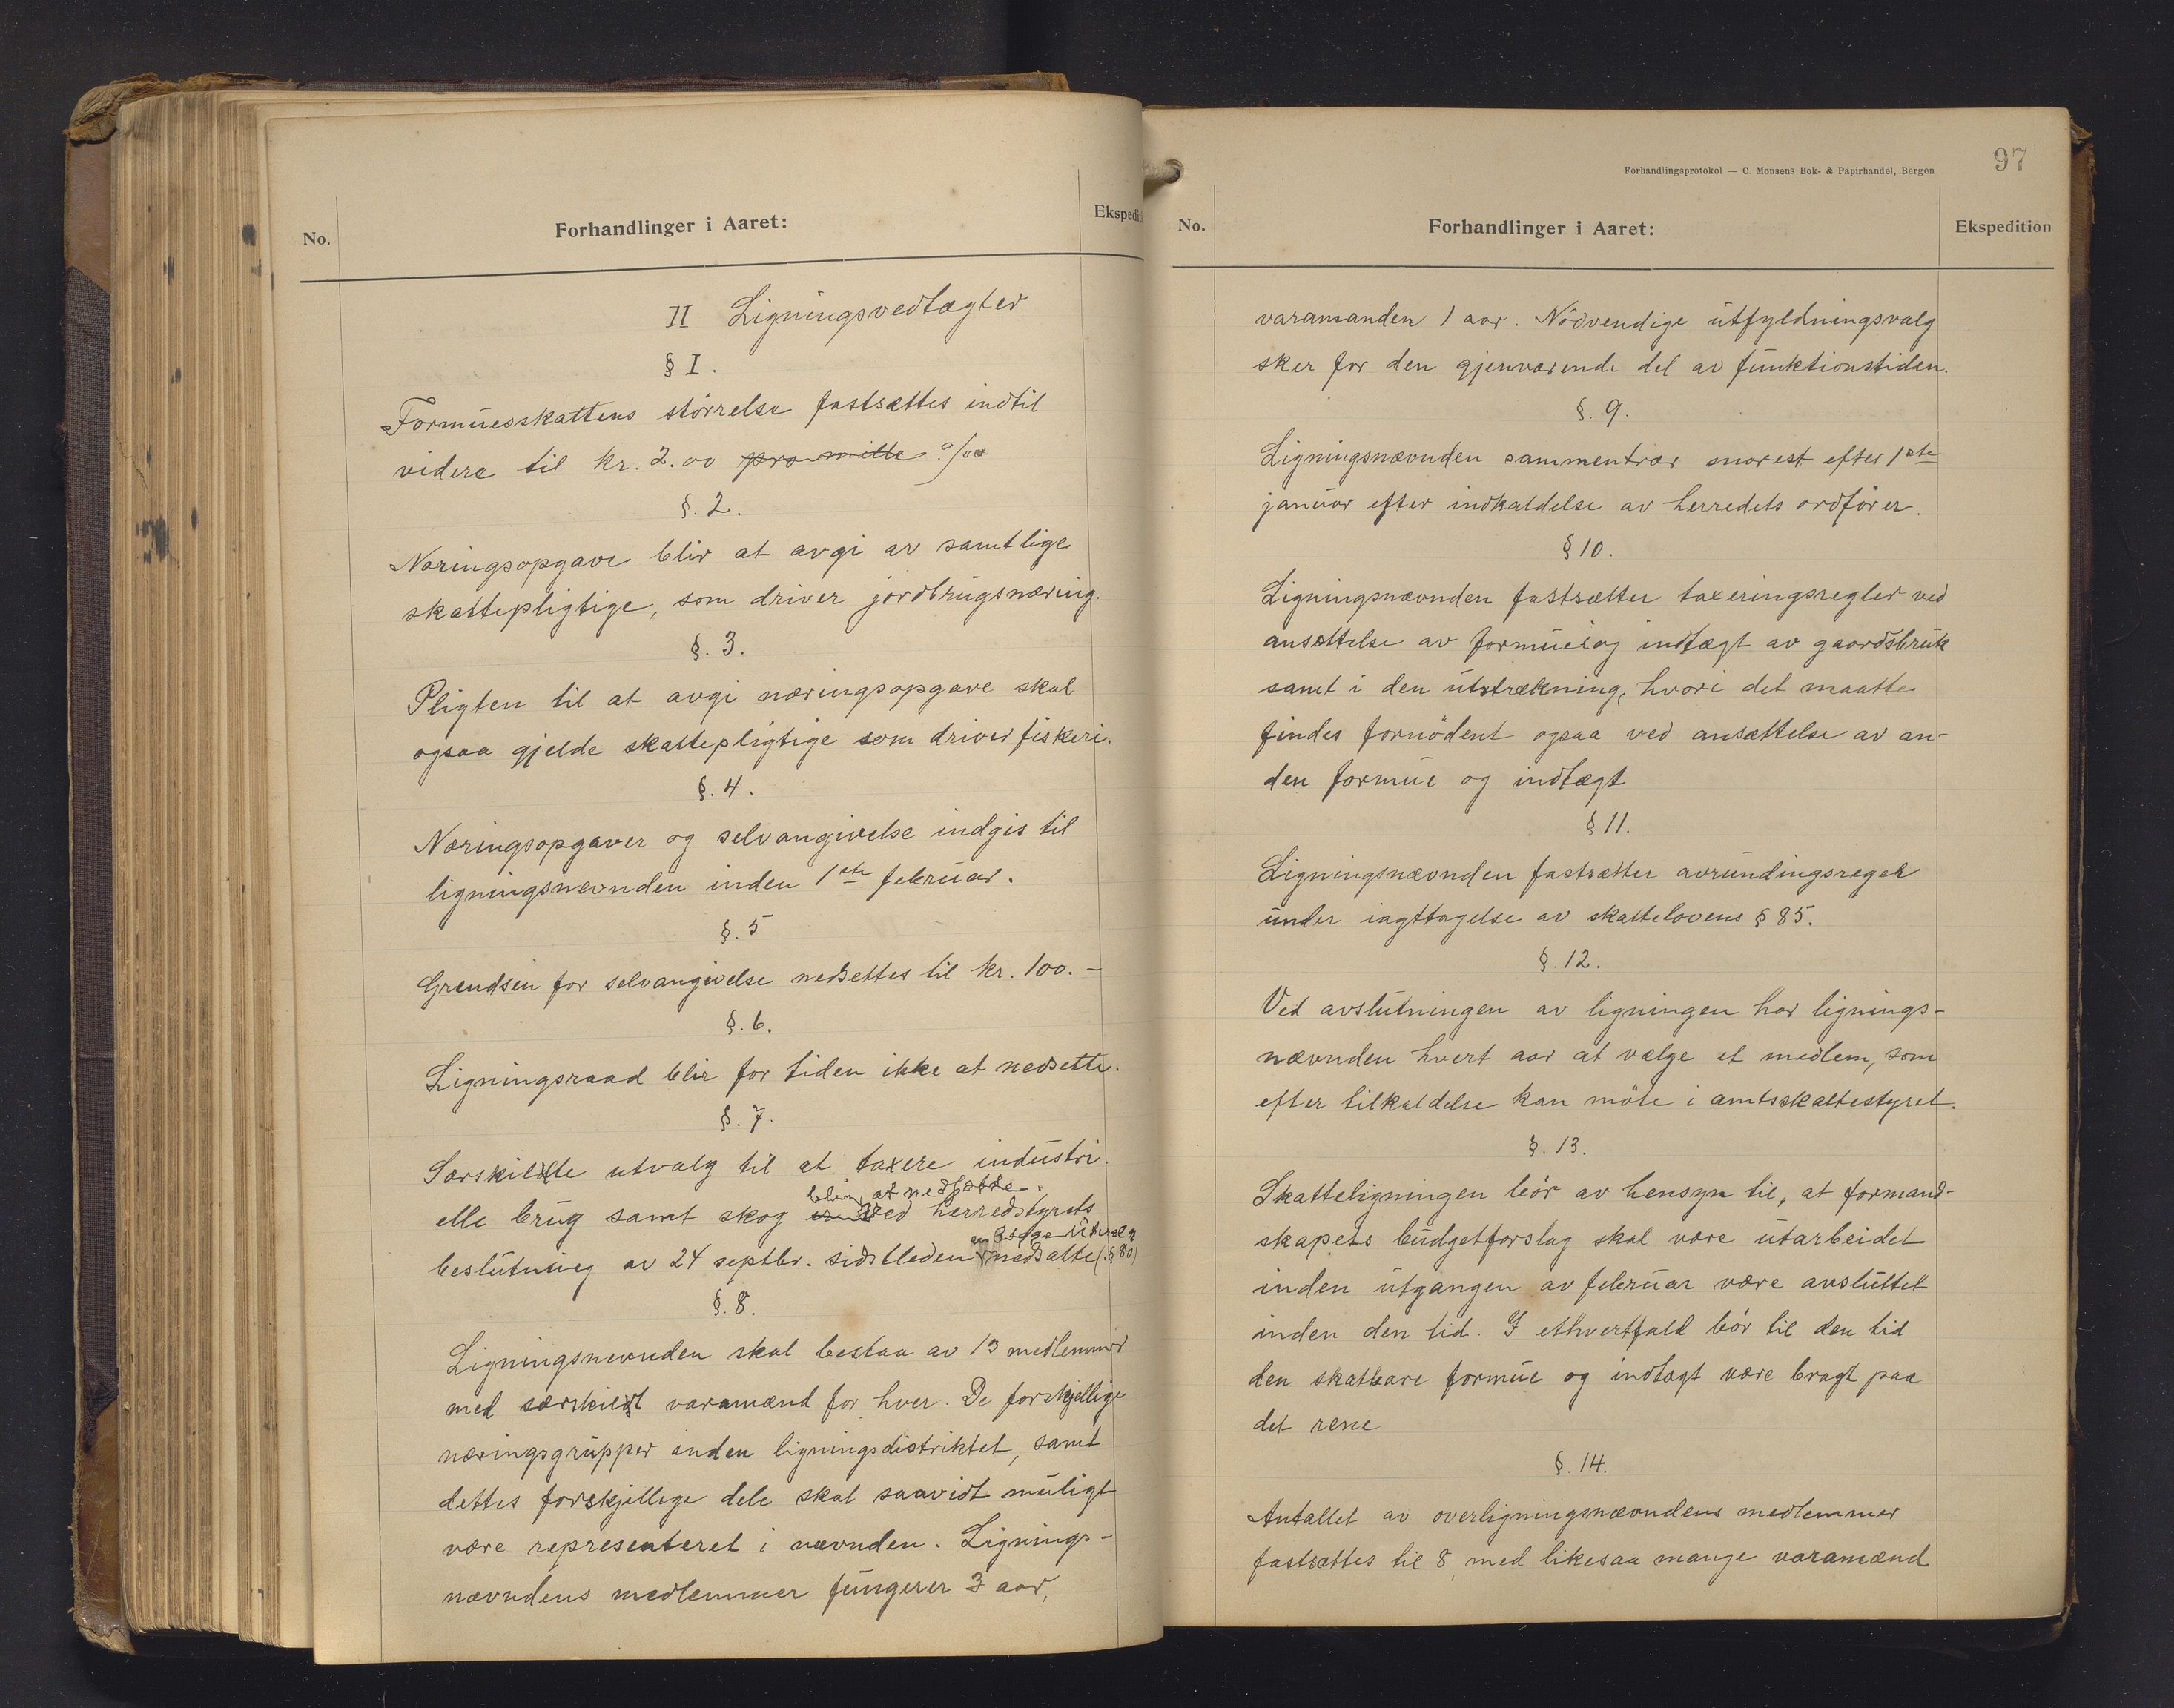 No.
Forhandlinger i Aaret:
Ekspedi
II Ligningsvedtægter
§ I.
Formuesskattens störrelse fastsættes indtil
videre til kr. 2.00 pro mille o/oo
§. 2.
Næringsopgave blir at avgi av samtlige
skattepligtige, som driver jordbrugsnæring.
§. 3.
Pligten til at avgi næringsopgave skal
ogsaa gjelde skattepligtige som driver fiskeri.
§. 4.
Næringsopgaver og selvangivelse indgis til
ligningsnevnden inden 1ste februar.
§. 5
Grændsen for selvangivelse nedsettes til kr. 100.-
§. 6.
Ligningsraad blir for tiden ikke at nedsette.
§. 7.
Særskilte utvalg til at taxere industri
blir at nedsætte.
elle brug samt skog ved herredstyrets
beslutning av 24 septbr. sidstleden nedsatte (§ 80)
§. 8.
Ligningsnevnden skal bestaa av 13 medlemmer
med særskilt varamænd for hver. De forskjellige
næringsgrupper inden ligningsdistriktet, samt
dettes forskjellige dele skal saavidt muligt
være representeret i nævnden. Lignings-
nævndens medlemmer fungerer 3 aar,
97
Forhandlingsprotokol — C. Monsens Bok- & Papirhandel, Bergen
No.
Forhandlinger i Aaret:
Ekspedition
varamanden 1 aar. Nödvendige utfyldningsvalg
sker for den gjenværende del av funktionstiden.
§. 9.
Ligningsnævnden sammentrær snarest efter 1ste
januar efter indkaldelse av herredets ordförer.
§ 10.
Ligningsnævnden fastsætter taxeringsregler ved
ansættelse av formue og indtægt av gaardsbruk
samt i den utstrækning, hvori det maatte
findes fornödent ogsaa ved ansættelse av an-
den formue og indtægt
§ 11.
Ligningsnævnden fastsætter avrundingsregel
under iagttagelse av skattelovens § 85.
§. 12.
Ved avslutningen av ligningen har lignings-
nævnden hvert aar at vælge et medlem, som
efter tilkaldelse kan möte i amtsskattestyret.
§. 13.
Skatteligningen bör av hensyn til, at formand-
skapets budgetforslag skal være utarbeidet
inden utgangen av februar være avsluttet
inden den tid. I ethvertfald bör til den tid
den skatbare formue og indtægt være bragt paa
det rene
§. 14.
Antallet av overligningsnævndens medlemmer
fastsættes til 8, med likesaa mange varamænd